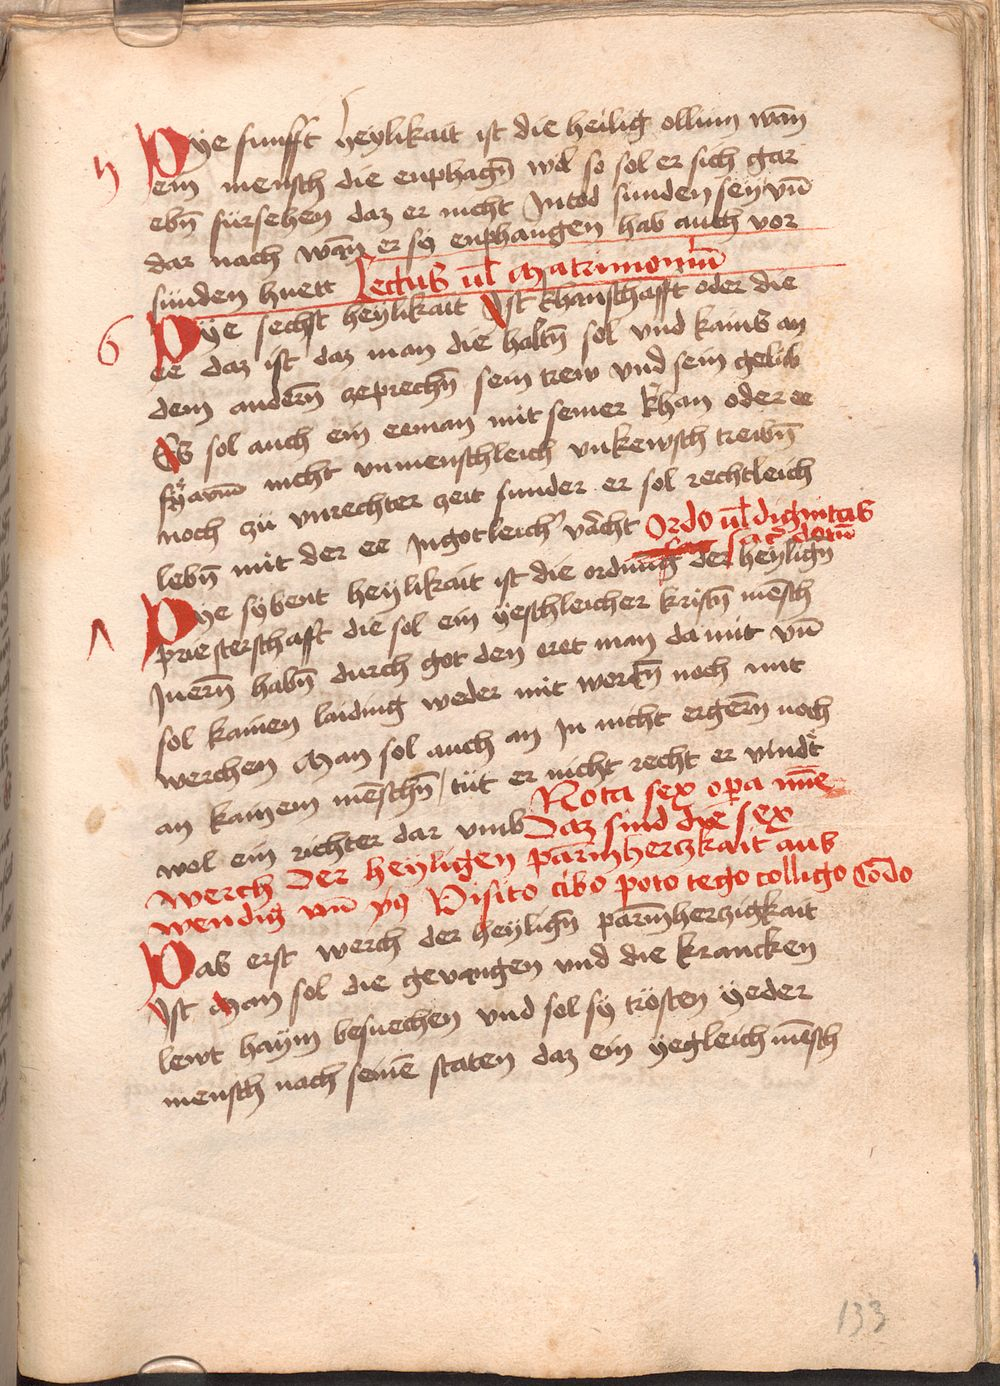 5 Dye funfft heylikait ist die heilig ollium wan̄
ein mensch die enphagn̄ wol so sol er sich gar
ebn̄ fürsehen daz er nicht In tod sunden sey vn̄
dar nach wan̄ er sy enphangen hab auch vor
sünden huett Lectus ul̄ Matrimoniū
6 Dye sechst heylikait Ist khanschafft oder die
ee daz ist daz man die haltn̄ sol vnd kains an
dem andern̄ zeprechn̄ sein trew vnd sein gelüb
Es sol auch ein eeman mit seiner khan oder ee
nicht vnmenschleich vnkewsch treibn̄
noch zü vnrechter zeit sunder er sol rechtleich
lebn̄ mit der ee In gotleich' vächt Ordo ul̄ dignitas
sac̄dotū
7 Dye sybent heylikait ist die ordnung der heylign̄
priesterschafft die sol ein yeschleicher kristn̄ mēsch
In ern̄ habn̄ durch got den eret man da mit vn̄
sol kainen laiding weder mit wortn̄ noch mit
werchen Man sol auch an In nicht ergern̄ noch
an kainem mēschn̄ / tüt er nicht recht er vindt
wol ein richter dar vmb Nota sex opa mīe
Daz sind die sex
werch der heyligen parmhertzkait aus
wendig vn̄ Visito cibo poto tego colligo Cōdo
Das erst werch der heylign̄ parm̄hertzigkait
Ist Man sol die gevangen vnd die krancken
lewt haym besuechen vnd sol sy trösten yeder
mensch nach seinē staten daz ein yegleich mēsch
133